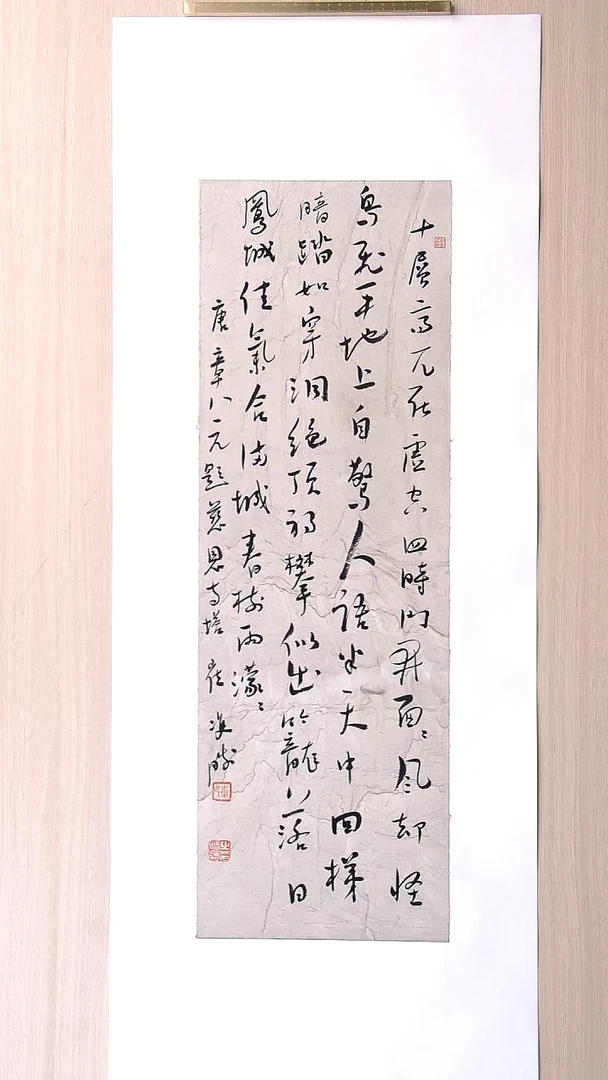 十層高兀在虛空四時門開面〻風却怪
鳥飛平地上自驚人語半天中回梯
暗踏如穿洞絕頂初攀似出籠落日
鳳城佳氣合滿城春樹雨濛〻
唐章八元題慈恩寺塔崔